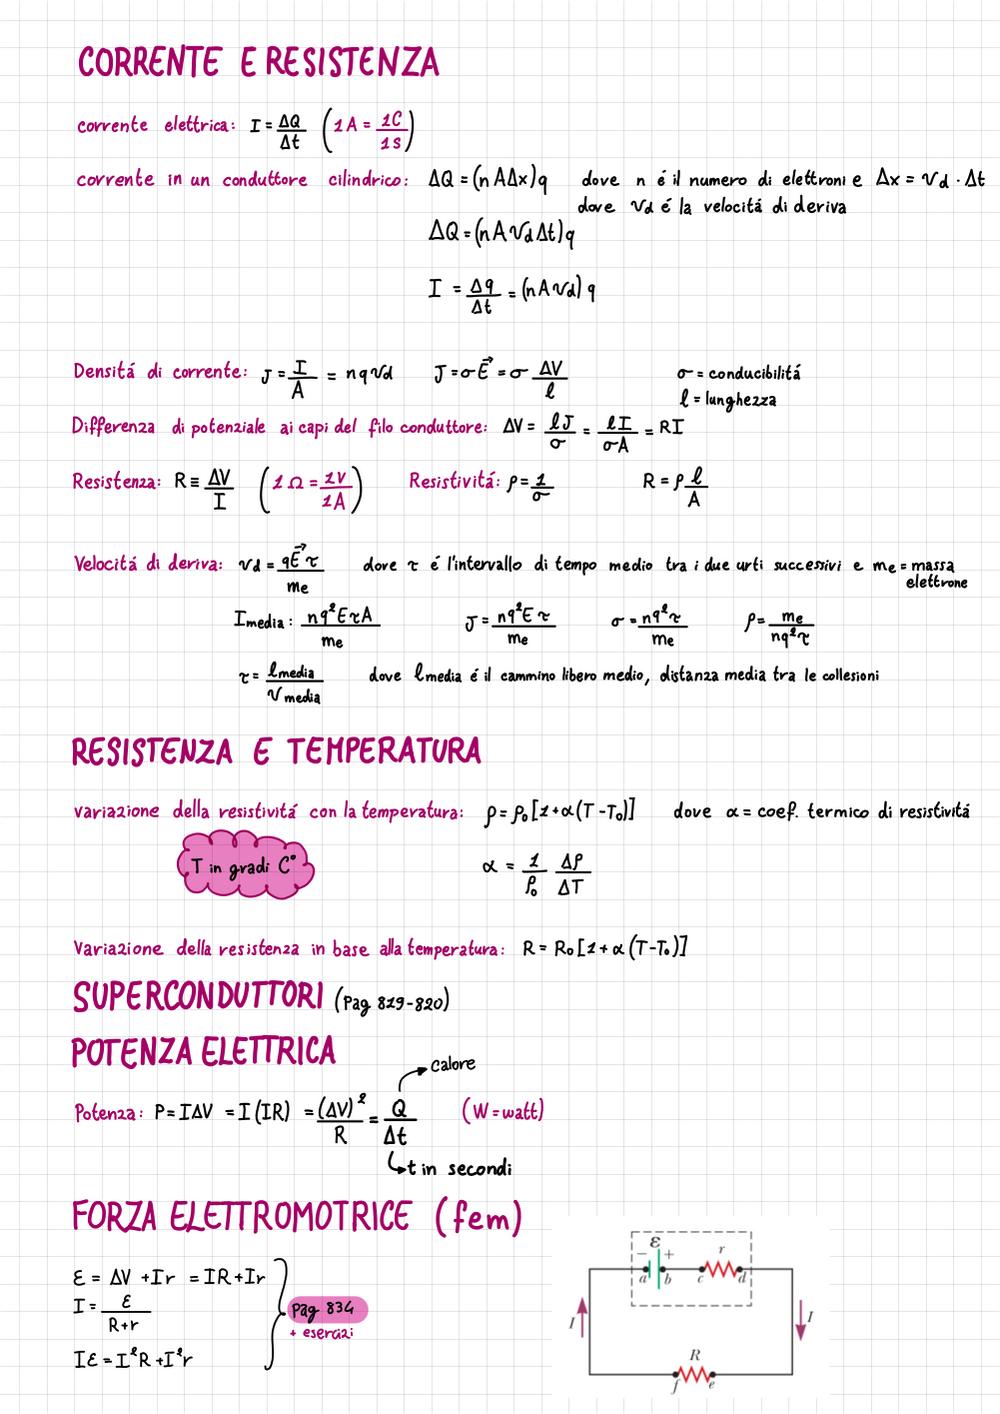 CORRENTE E RESISTENZA
corrente elettrica: I = ΔQ/Δt (1A = 1C/1s)
corrente in un conduttore cilindrico: ΔQ = (nAΔx)q dove n é il numero di elettroni e Δx = vd · Δt
dove vd é la velocitá di deriva
ΔQ = (nAvdΔt)q
I = Δq/Δt = (nAvd)q
Densitá di corrente: J = I/A = nqvd J = σE⃗ = σ ΔV/ℓ σ = conducibilitá
ℓ = lunghezza
Differenza di potenziale ai capi del filo conduttore: ΔV = ℓJ/σ = ℓI/σA = RI
Resistenza: R ≡ ΔV/I (1Ω = 1V/1A) Resistivitá: ρ = 1/σ R = ρ ℓ/A
Velocitá di deriva: vd = qE⃗τ/me dove τ é l'intervallo di tempo medio tra i due urti successivi e me = massa
elettrone
Imedia: nq²EτA/me J = nq²Eτ/me σ = nq²τ/me ρ = me/nq²τ
τ = ℓmedia/Vmedia dove ℓmedia é il cammino libero medio, distanza media tra le collesioni
RESISTENZA E TEMPERATURA
variazione della resistivitá con la temperatura: ρ = ρ₀[1+α(T-T₀)] dove α = coef. termico di resistivitá
T in gradi C° α = 1/ρ₀ Δρ/ΔT
Variazione della resistenza in base alla temperatura: R = R₀[1+α(T-T₀)]
SUPERCONDUTTORI (Pag 819-820)
POTENZA ELETTRICA
calore
Potenza: P = IΔV = I(IR) = (ΔV)²/R = Q/Δt (W = watt)
t in secondi
FORZA ELETTROMOTRICE (fem)
ε = ΔV + Ir = IR + Ir
I = ε/R+r
pag 834
+ esercizi
Iε = I²R + I²r
ε
− + r
a b c d
I I
R
f e